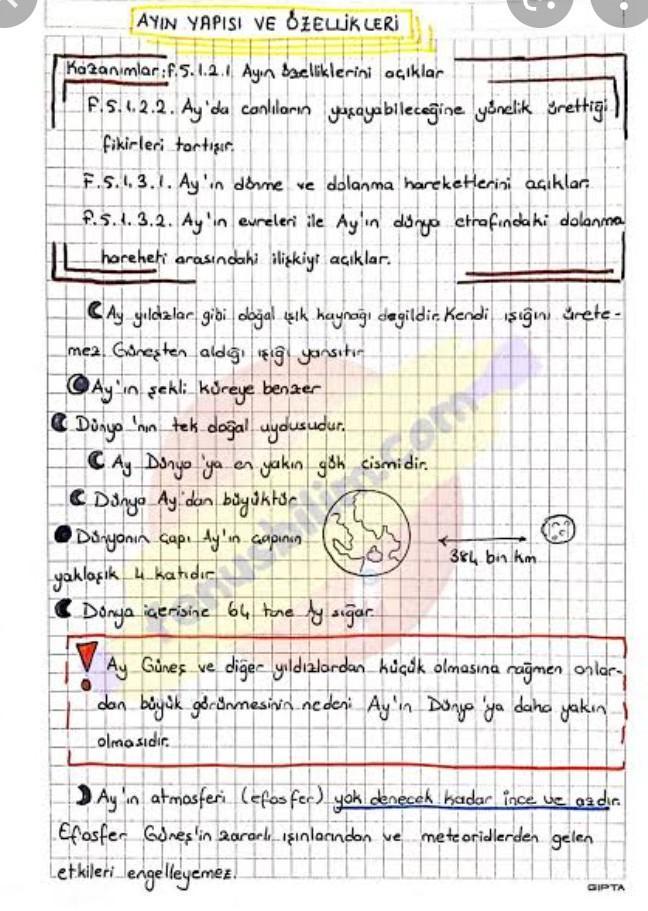 AYIN YAPISI VE ÖZELLİKLERİ
Kazanımlar: F.5.1.2.1 Ayın özelliklerini açıklar
F.5.1.2.2. Ay'da canlıların yaşayabileceğine yönelik ürettiği
fikirleri tartışır.
F.5.1.3.1. Ay'ın dönme ve dolanma hareketlerini açıklar.
F.5.1.3.2. Ay'ın evreleri ile Ay'ın dünya etrafındaki dolanma
hareketi arasındaki ilişkiyi açıklar.
Ay yıldızlar gibi doğal ışık kaynağı değildir. Kendi ışığını ürete-
mez. Güneşten aldığı ışığı yansıtır
Ay'ın şekli küreye benzer
Dünya'nın tek doğal uydusudur.
Ay Dünya'ya en yakın gök cismidir.
Dünya Ay'dan büyüktür
Dünyanın çapı Ay'ın çapının
yaklaşık 4 katıdır
384 bin km
Dünya içerisine 64 tane Ay sığar
! Ay Güneş ve diğer yıldızlardan küçük olmasına rağmen onlar-
dan büyük görünmesinin nedeni Ay'ın Dünya'ya daha yakın
olmasıdır.
Ay'ın atmosferi (efosfer) yok denecek kadar ince ve azdır.
Efosfer Güneş'in zararlı ışınlarından ve meteoridlerden gelen
etkileri engelleyemez.
GIPTA
yunusbilim.com